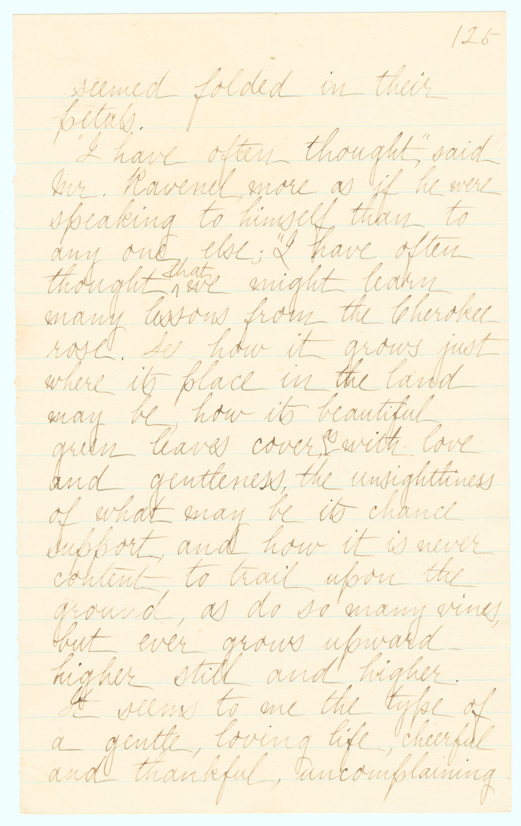 125
seemed folded in their
petals.
"I have often thought," said
Mr. Ravenel, more as if he were
speaking to himself than to
any one else; "I have often
that
thought ^ we might learn
many lessons from the Cherokee
rose. See how it grows just
where its place in the land
may be, how its beautiful
green leaves cover, as with love
and gentleness, the unsightliness
of what may be its chance
support, and how it is never
content to trail upon the
ground, as do so many vines,
but ever grows upward
higher still and higher.
It seems to me the type of
a gentle, loving life, cheerful
and thankful, uncomplaining